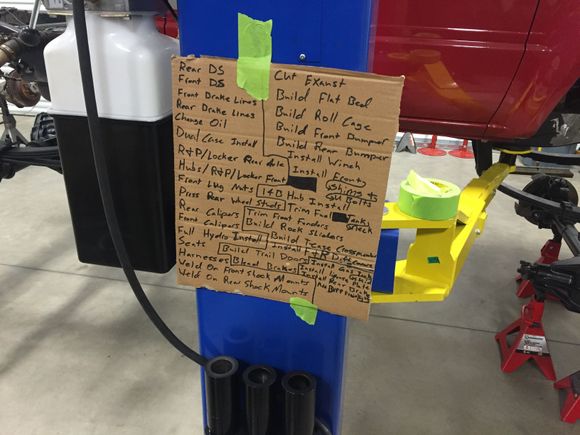 Rear DS
Front DS
Front Brake Lines
Rear Brake Lines
Change Oil
Dual Case Install
R&P/Locker Rear
Hubs/R&P/Locker Front
Front Lug Nuts
Press Rear Wheel Studs
Rear Calipers
Front Calipers
Full Hydro Install
Seats
Harnesses
Weld On Front Shock Mounts
Weld On Rear Shock Mounts
Cut Exaust
Build Flat Bed
Build Roll Cage
Build Front Bumper
Build Rear Bumper
Install Winch
Install Front
Shocks
U Bolts
Hub Install
Trim Fuel Tank
Neck
Trim Front Fenders
Build Rock Sliders
Build T-Case Crossmember
Install F&R Driveshafts
Build Trail Doors
Bleed Brakes
Install
Rear Brake